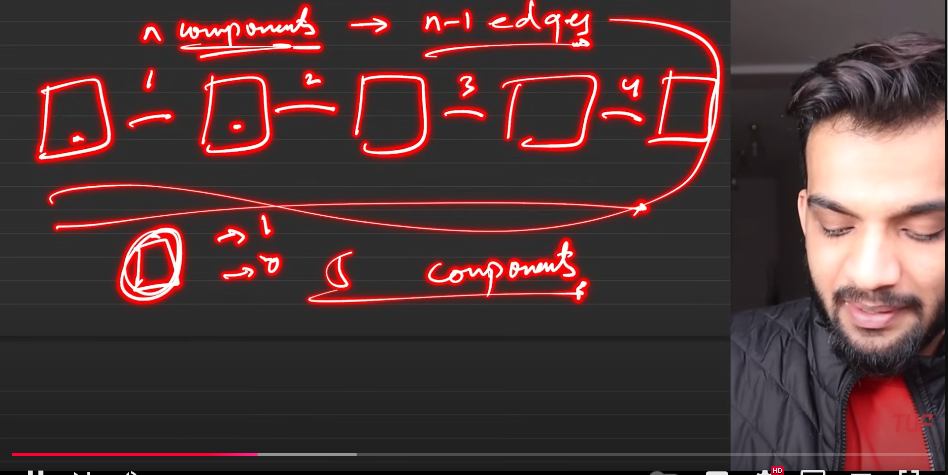 n components → n-1 edges
1 2 3 4
→ 1
→ 0
5 components
TUF
HD